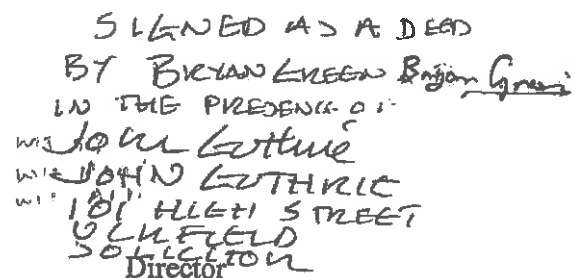 SIGNED AS A DEED
BY BRYAN GREEN Bryan Green
IN THE PRESENCE OF
John Guthrie
JOHN GUTHRIE
101 HIGH STREET
UCKFIELD
SOLICITOR
Director